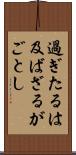 過ぎたるは
及ばざるが
ごとし